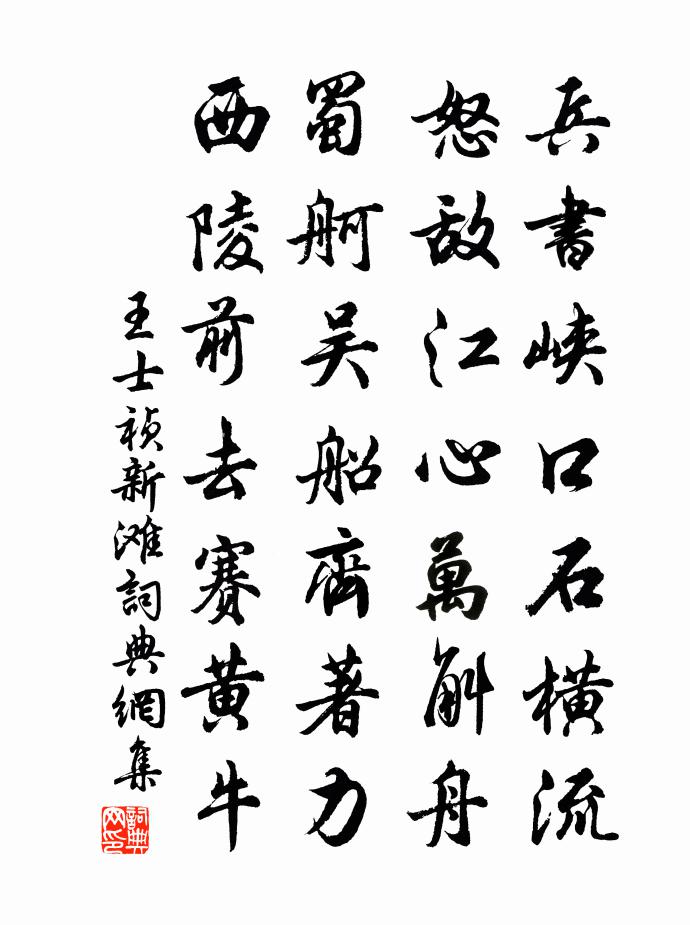 兵書峡口石横流
怒敌江心萬斛舟
蜀舸吴船齊著力
西陵前去賽黄牛
王士禎新滩詞典網集
詞典网印